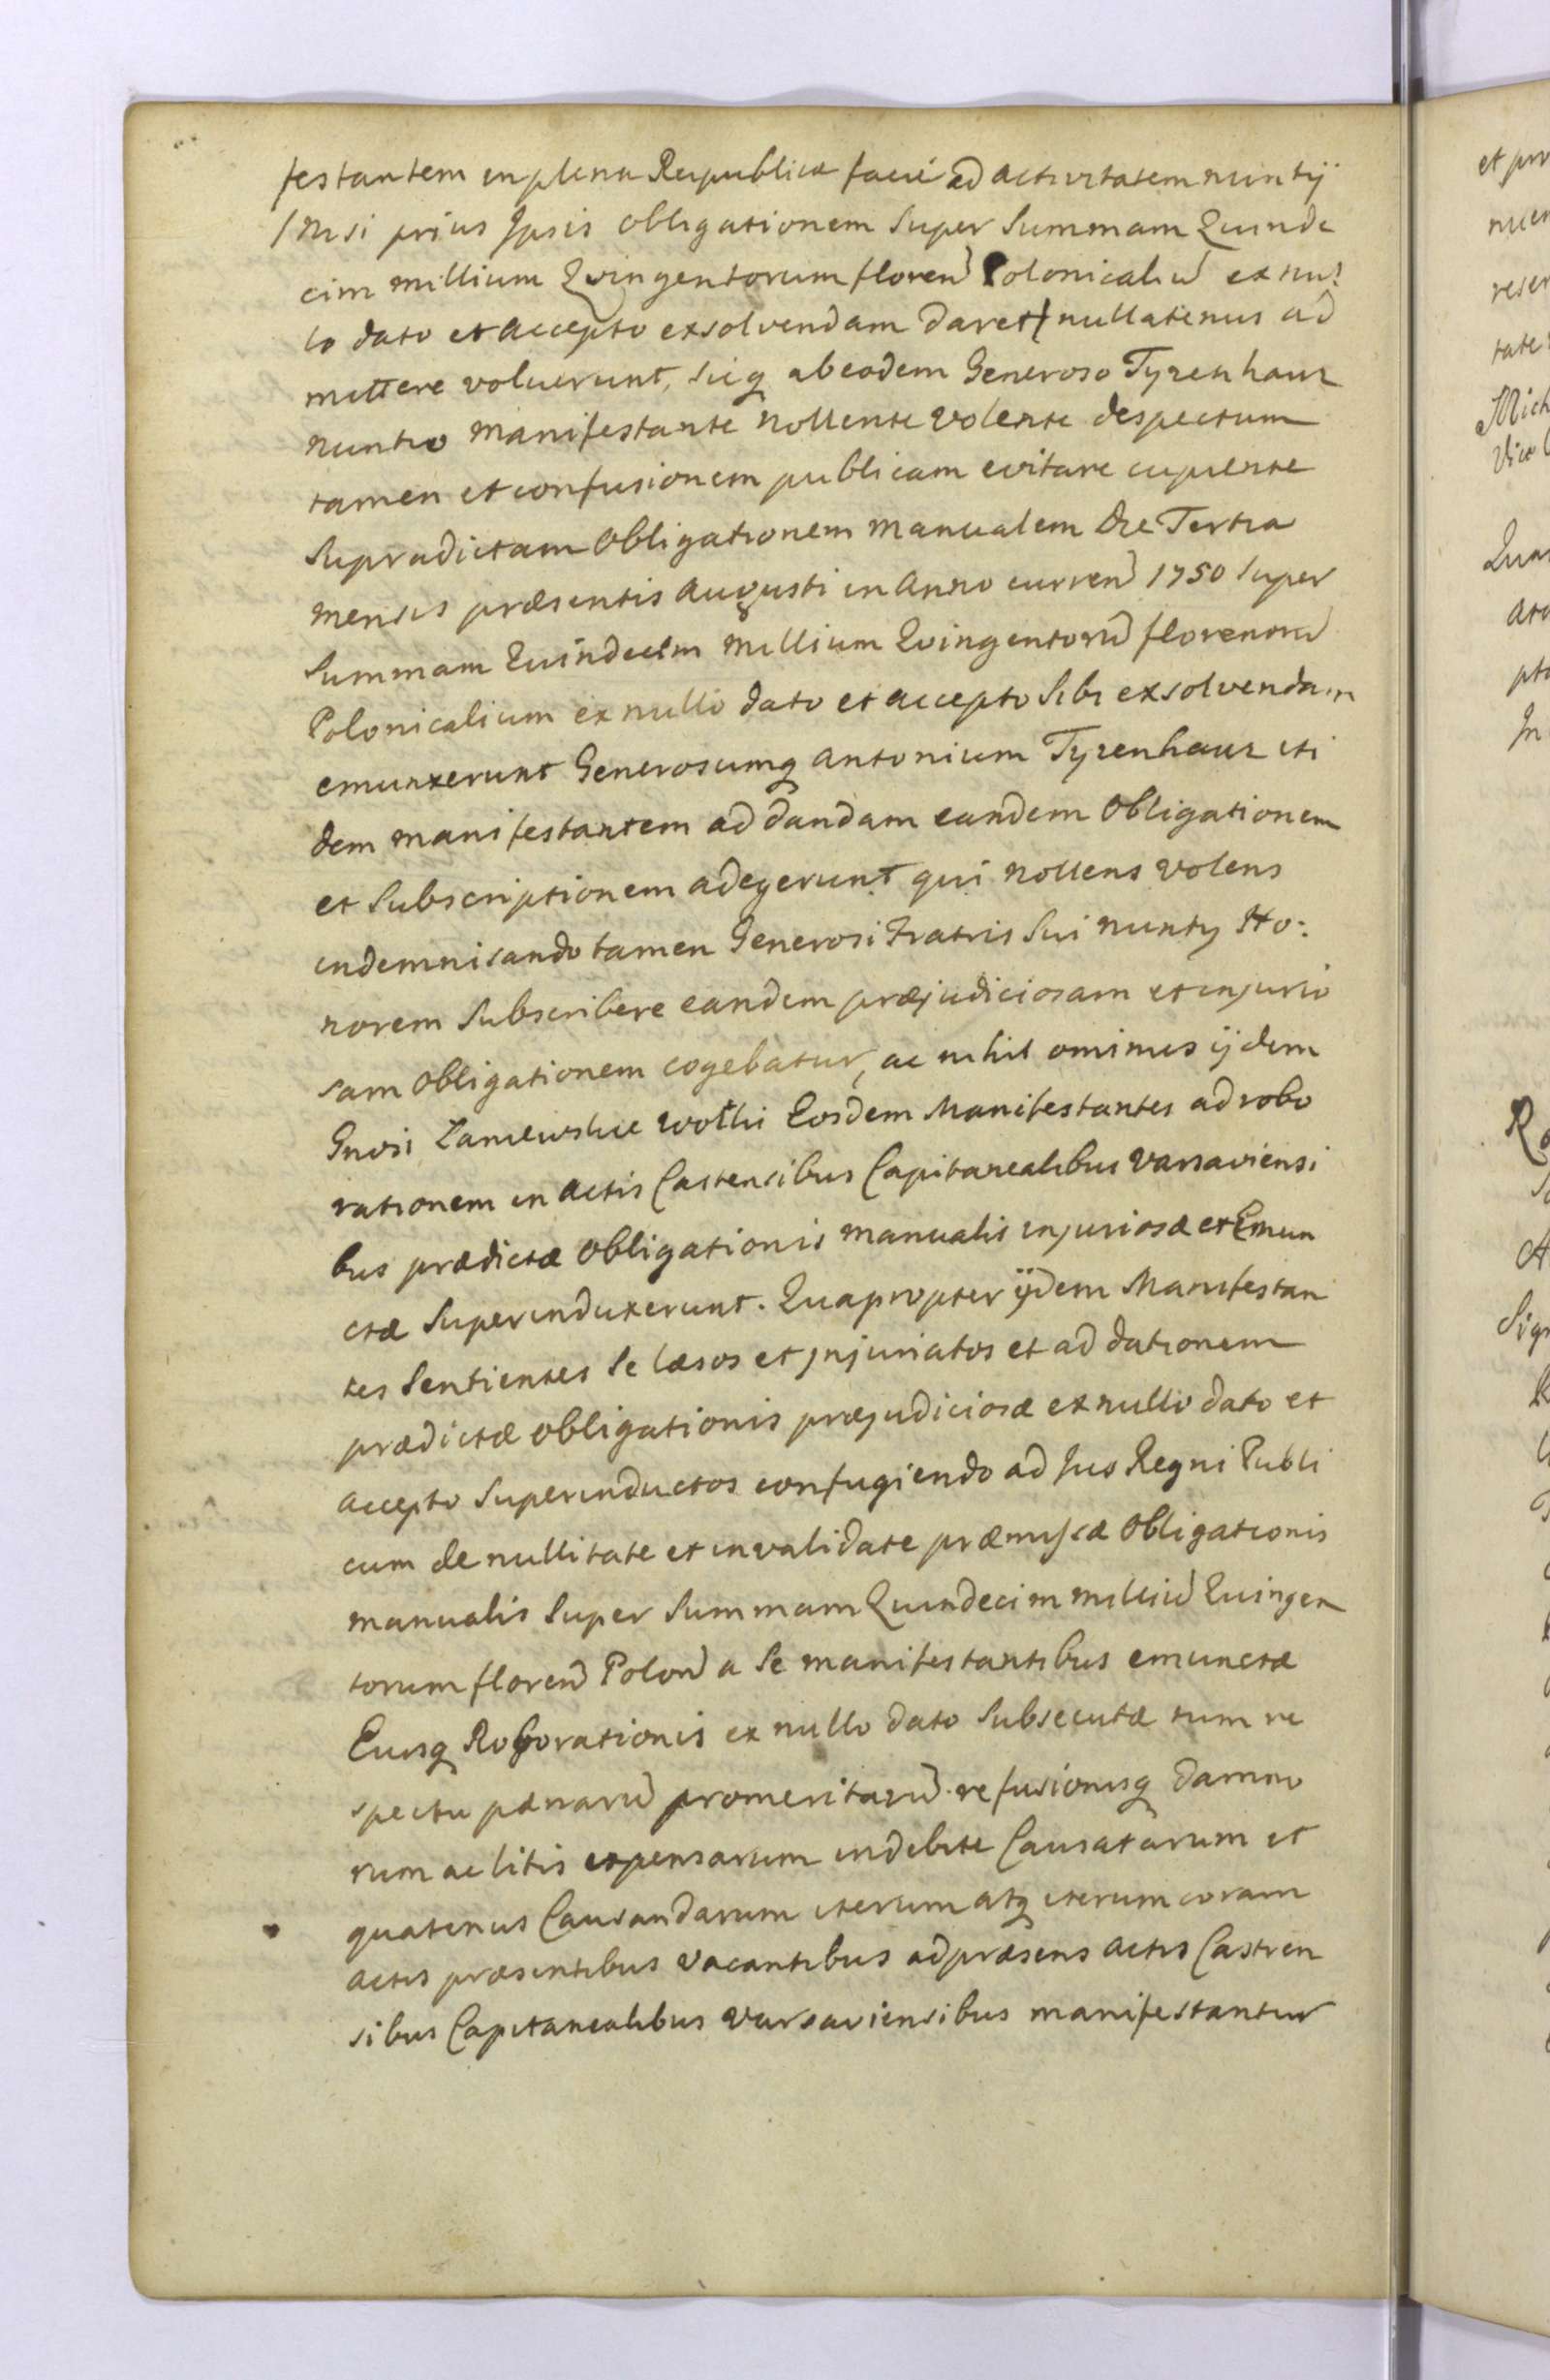 festantem in plena Reipublicæ facie ad activitatem nuntij
/nisi prius Ipsis obligationem super Summam Quinde
cim millium Quingentorum floren Polonicaliu ex nul
lo dato et accepto exsolvendam daret/ nullatenus ad
mittere voluerunt, sicq abeodem Generoso Tyzenhauz
nuntio manifestante nollente volente despectum
tamen et confusionem publicam evitare cupiente
Supradictam Obligationem manualem die Tertia
mensis præsentis Augusti in Anno curren 1750 super
Summam Quindecim millium Quingentoru florenoru
Polonicalium ex nullo dato et accepto Sibi exsolvendam
emunxerunt Generosumq Antonium Tyzenhauz iti
dem manifestantem ad dandam eandem Obligationem
et Subscriptionem adegerunt qui nollens volens
indemnisando tamen Generosi Fratris Sui nuntij Ho:
norem Subscribere eandem præjudiciosam et injurio
sam Obligationem cogebatur, ac nihil ominus ijdem
Gnosi Zaniewskie Wolki Eosdem Manifestantes ad robo
rationem in Actis Castensibus Capitanealibus Varsaviensi
bus prædictæ Obligationis manualis injuriosæ et Emun
ctæ Superinduxerunt. Quapropter ijdem Manifestan
tes Sentientes Se læsos et Injuriatos et ad dationem
prædictæ Obligationis præjudiciosæ ex nullo dato et
accepto Superinductos confugiendo ad Jus Regni Publi
cum de nullitate et invalidate præmissæ Obligationis
manualis Super Summam Quindecim milliu Quingen
torum floren Polon a Se manifestantibus emunctæ
Eiusq Roborationis ex nullo dato Subsecutæ tum re
spectu pænaru promeritaru refusionisq damno
rum ac litis expensarum indebite Causatarum et
quatenus Causandarum iterum atq iterum coram
actis præsentibus vacantibus ad præsens actis Castren
sibus Capitanealibus Varsaviensibus manifestantur